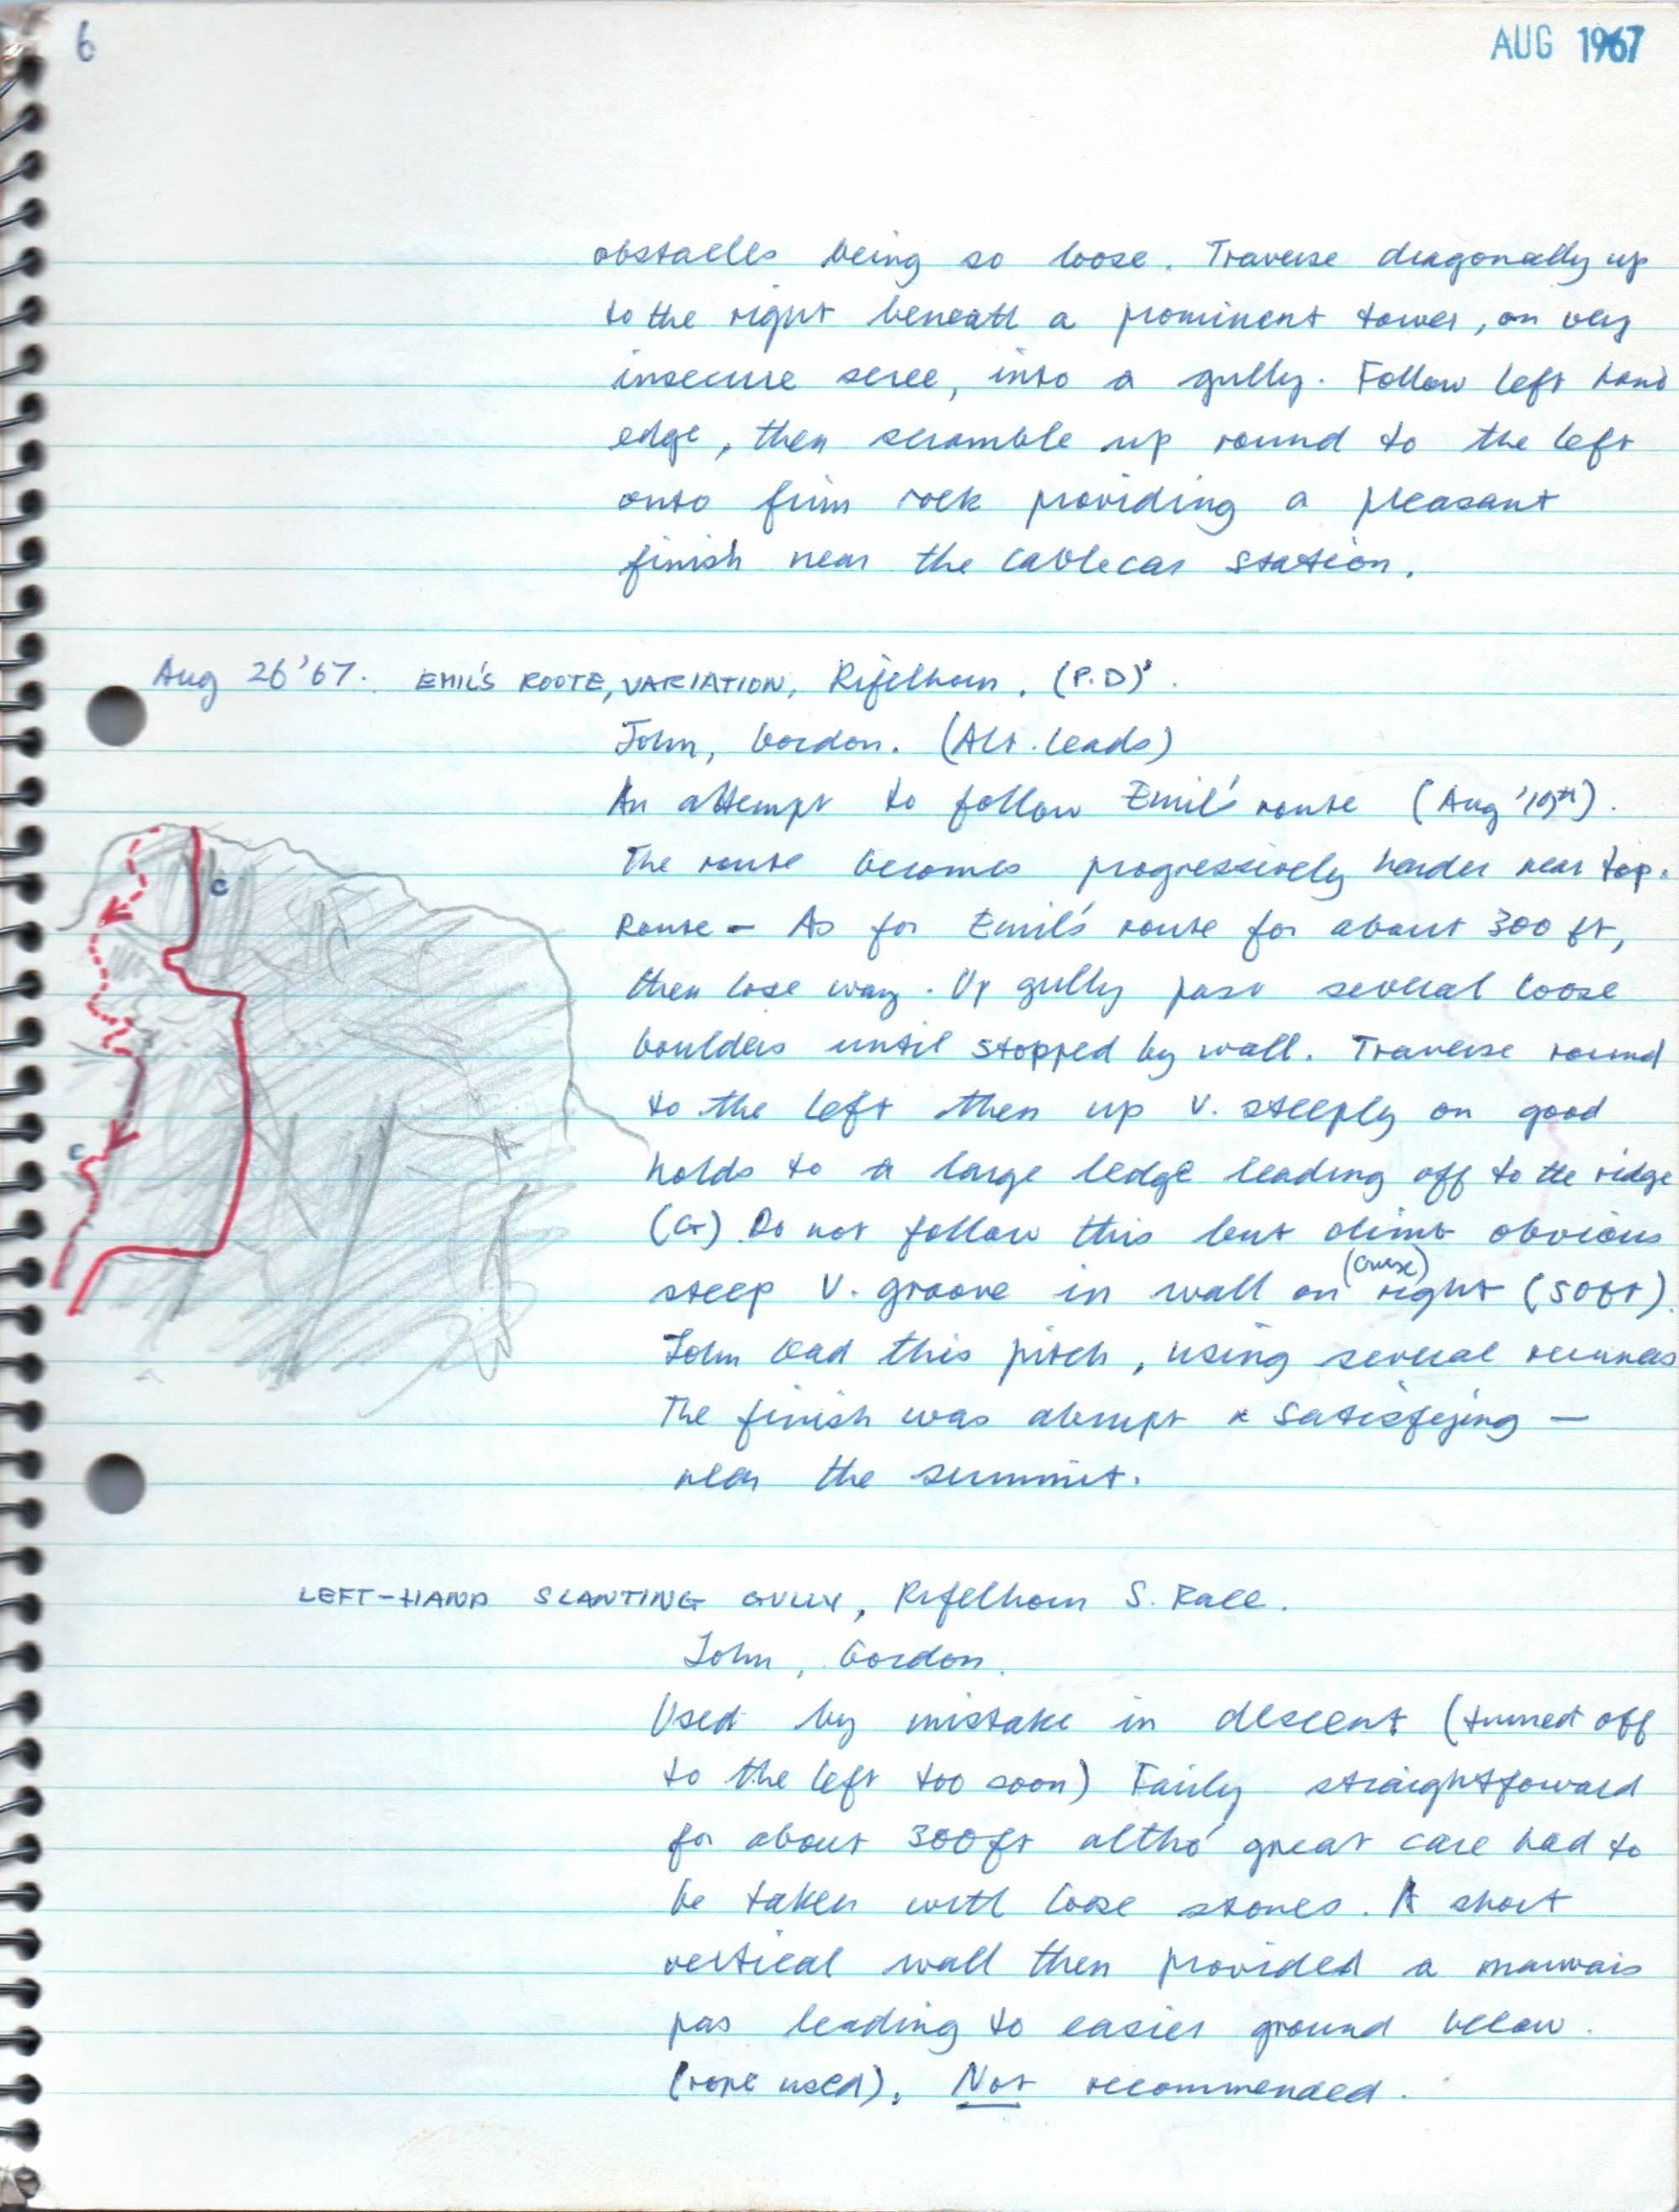 6
AUG 1967
obstacles being so loose. Traverse diagonally up
to the right beneath a prominent tower, on very
insecure scree, into a gully. Follow left hand
edge, then scramble up round to the left
onto firm rock providing a pleasant
finish near the cablecar station.
Aug 26 '67. EMIL'S ROUTE, VARIATION, Rifelhorn. (P.D)'.
John, Gordon. (Alt. leads)
An attempt to follow Emil's route (Aug '19th).
The route becomes progressively harder near top.
Route - As for Emil's route for about 300 ft,
then lose way. Up gully past several loose
boulders until stopped by wall. Traverse round
to the left then up V. steeply on good
holds to a large ledge leading off to the ridge
(G) Do not follow this but climb obvious
(Crux)
steep V. groove in wall on right (50ft).
John lead this pitch, using several runners
The finish was abrupt & satisfying —
near the summit.
C
C
LEFT-HAND SLANTING GULLY, Rifelhorn S. Face.
John, Gordon.
Used by mistake in descent (turned off
to the left too soon) Fairly straightforward
for about 300ft altho' great care had to
be taken with loose stones. A short
vertical wall then provided a mauvais
pas leading to easier ground below.
(rope used). Not recommended.